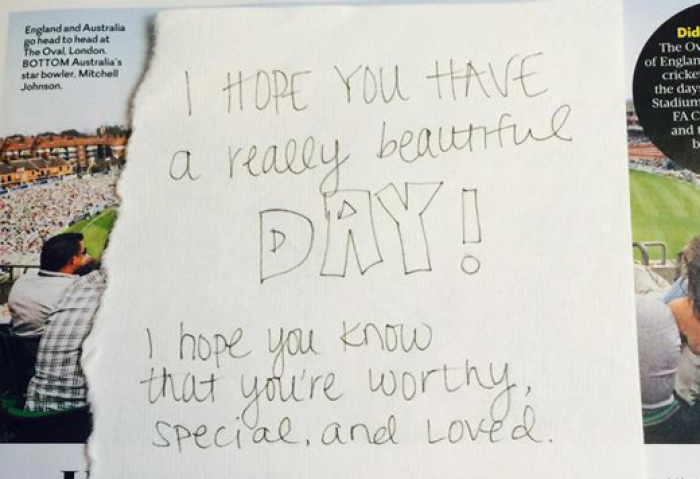 England and Australia
go head to head at
The Oval, London.
BOTTOM Australia's
star bowler, Mitchell
Johnson.
I HOPE YOU HAVE
a really beautiful
DAY!
I hope you know
that you're worthy,
special, and Loved.
Did
The Ov
of Englan
cricke
the days
Stadium
FA C
and t
b